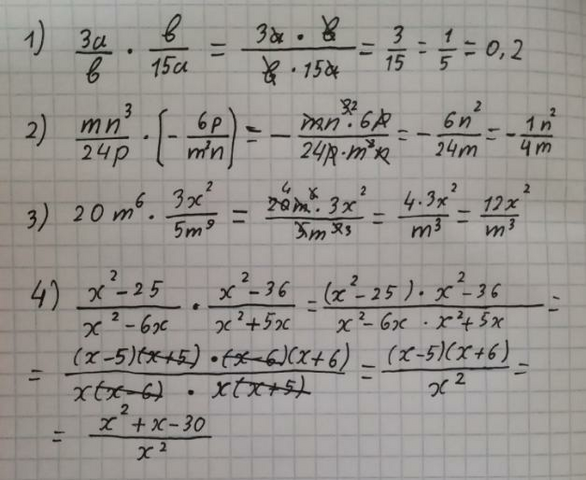 1) 3a/в · в/15a = 3a · в/в · 15a = 3/15 = 1/5 = 0,2
2) mn³/24p · (- 6p/m²n) = - mn³² · 6p/24p · m²n = - 6n²/24m = - 1n²/4m
3) 20 m⁶ · 3x²/5m⁹ = 20⁴m⁶ · 3x²/5m⁹³ = 4·3x²/m³ = 12x²/m³
4) x²-25/x²-6x · x²-36/x²+5x = (x²-25) · x²-36/x²-6x · x²+5x =
= (x-5)(x+5) · (x-6)(x+6)/x(x-6) · x(x+5) = (x-5)(x+6)/x² =
= x²+x-30/x²